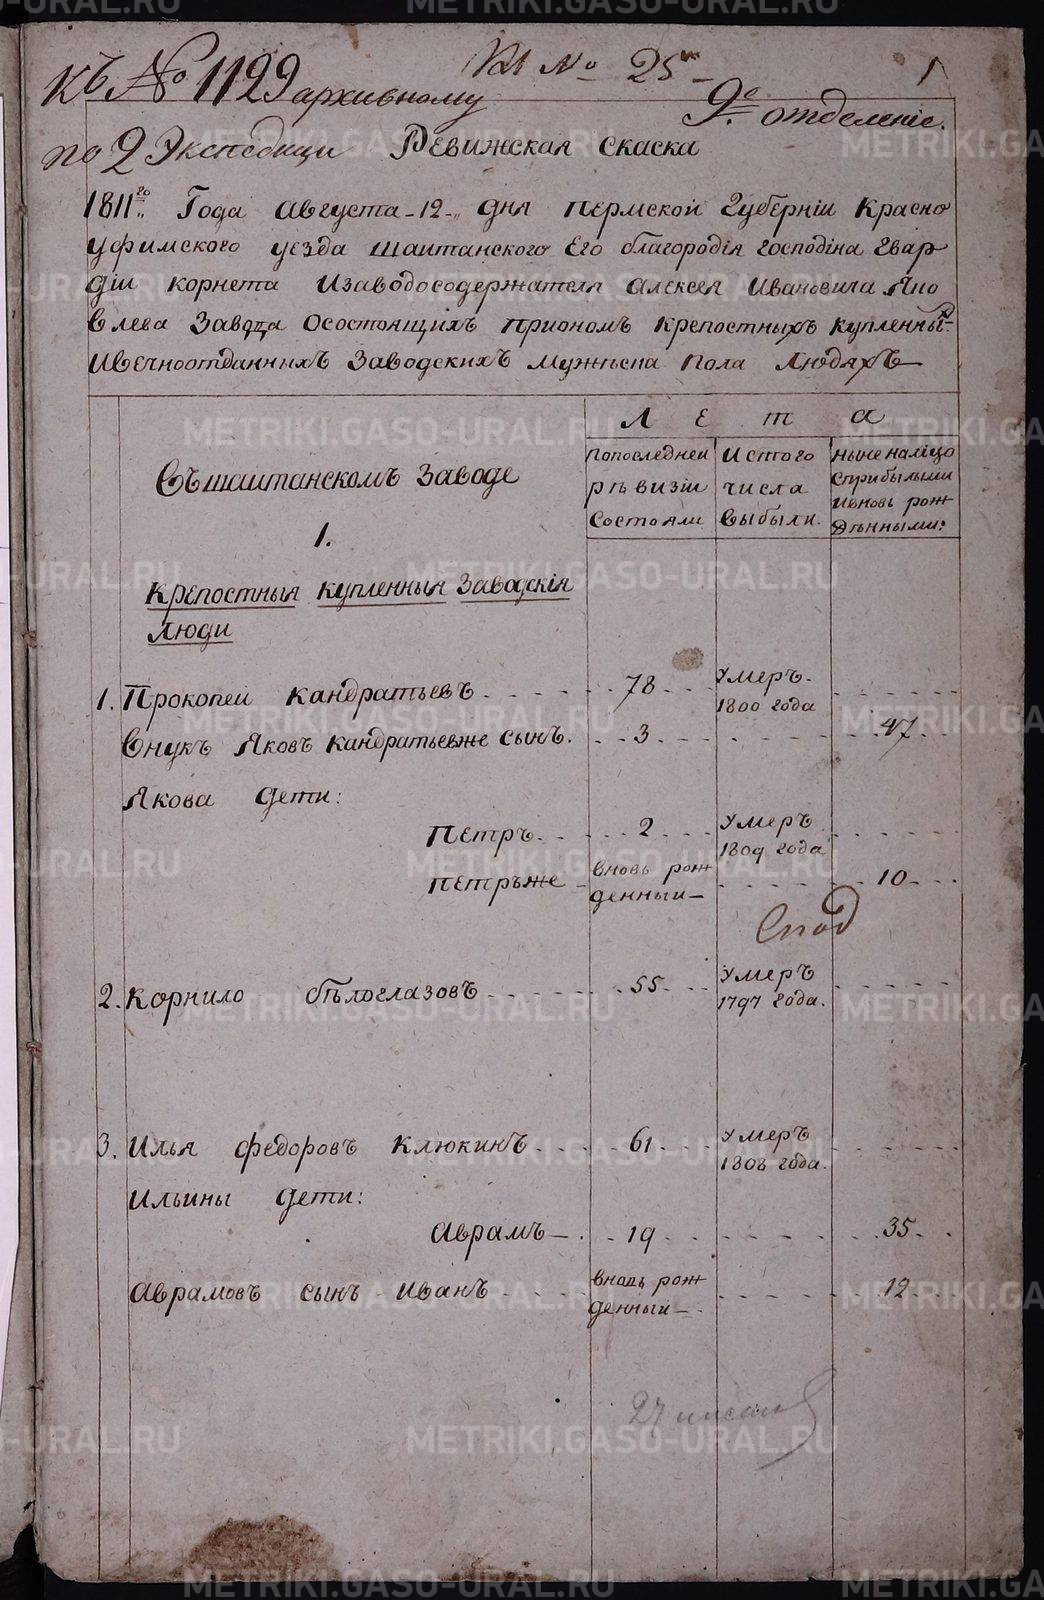 Къ № 1129 архивному
№ 25
1
9е отделенiе.
по 2 Экспедици Ревижская скаска
1811го Года Августа 12 дня Пермской Губернiи Красно
уфимского уезда шаитанского Его благородiя господiна Гвар
дiи корнета Изаводосодержателя Алексея Ивановича Яко
влева Завода Осостоящихъ приономъ крепостныхъ купленных
Ивечноотданныхъ Заводскихъ мужеска пола людяхъ
Лета
Въшаитанскомъ Заводе
1.
попоследней ревизiи состояли
Истого числа выбыли.
Ныне налiцо сприбылыми ивновь рожденными:
Крепостныя купленныя Заводскiя
люди
1. Прокопеи Кандратьевъ 78 Умеръ 1800 года
Внукъ Яковъ Кандратьевже сынъ. 3 47
Якова дети:
Петръ 2 Умеръ 1809 года
Петръже вновь рожденный 10
2. Корнило бѣлоглазовъ 55 Умеръ 1797 года.
3. Илья федоровъ Клюкинъ 61 Умеръ 1808 года.
Ильины дети:
Аврамъ 19 35
Аврамовъ сынъ Иванъ вновь рожденный 12
27
METRIKI.GASO-URAL.RU